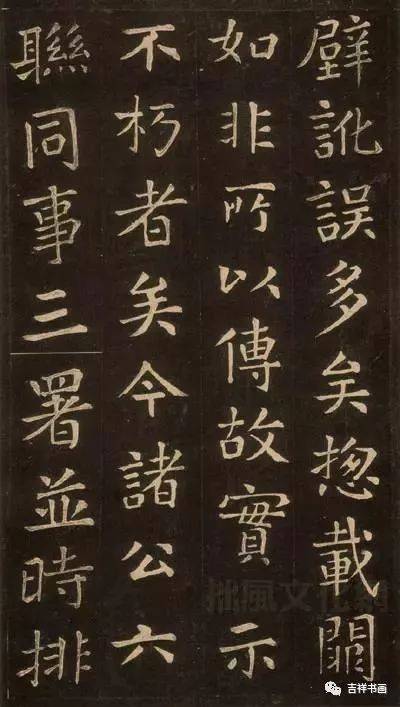 壁訛誤多矣揔載闕
如非所以傳故實示
不朽者矣今諸公六
聯同事三署並時排
拙風文化網
吉祥书画